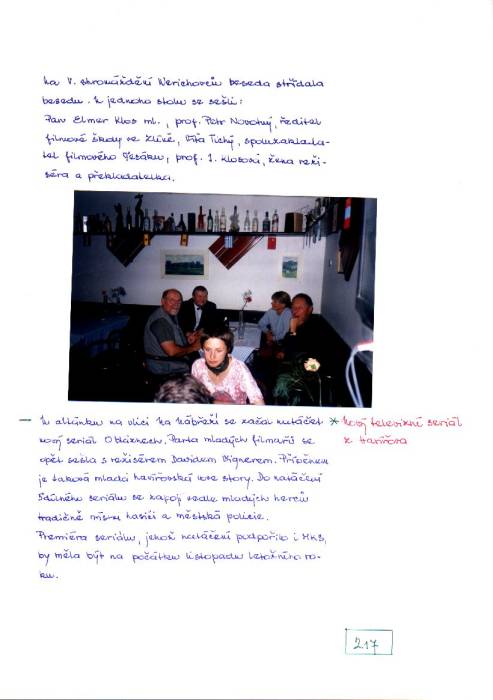 Na V. shromáždění Werichovců beseda střídala
besedu. K jednomu stolu se sešli:
Pan Elmer Klos ml., prof. Petr Novotný, ředitel
filmové školy ve Zlíně, Víťa Tichý, spoluzaklada-
tel filmového Pesáku, prof. I. Klosová, žena reži-
séra a překladatelka.
— V altánku na ulici Na Nábřeží se začal natáčet
nový seriál O bláznech. Parta mladých filmařů se
opět sešla s režisérem Davidem Vignerem. Příběhem
je taková mladá havířovská love story. Do natáčení
5dílného seriálu se zapojí vedle mladých herců
tradičně místní hasiči a městská policie.
Premiéra seriálu, jehož natáčení podpořilo i MKS,
by měla být na počátku listopadu letošního ro-
ku.
* Nový televizní seriál
z Havířova
217